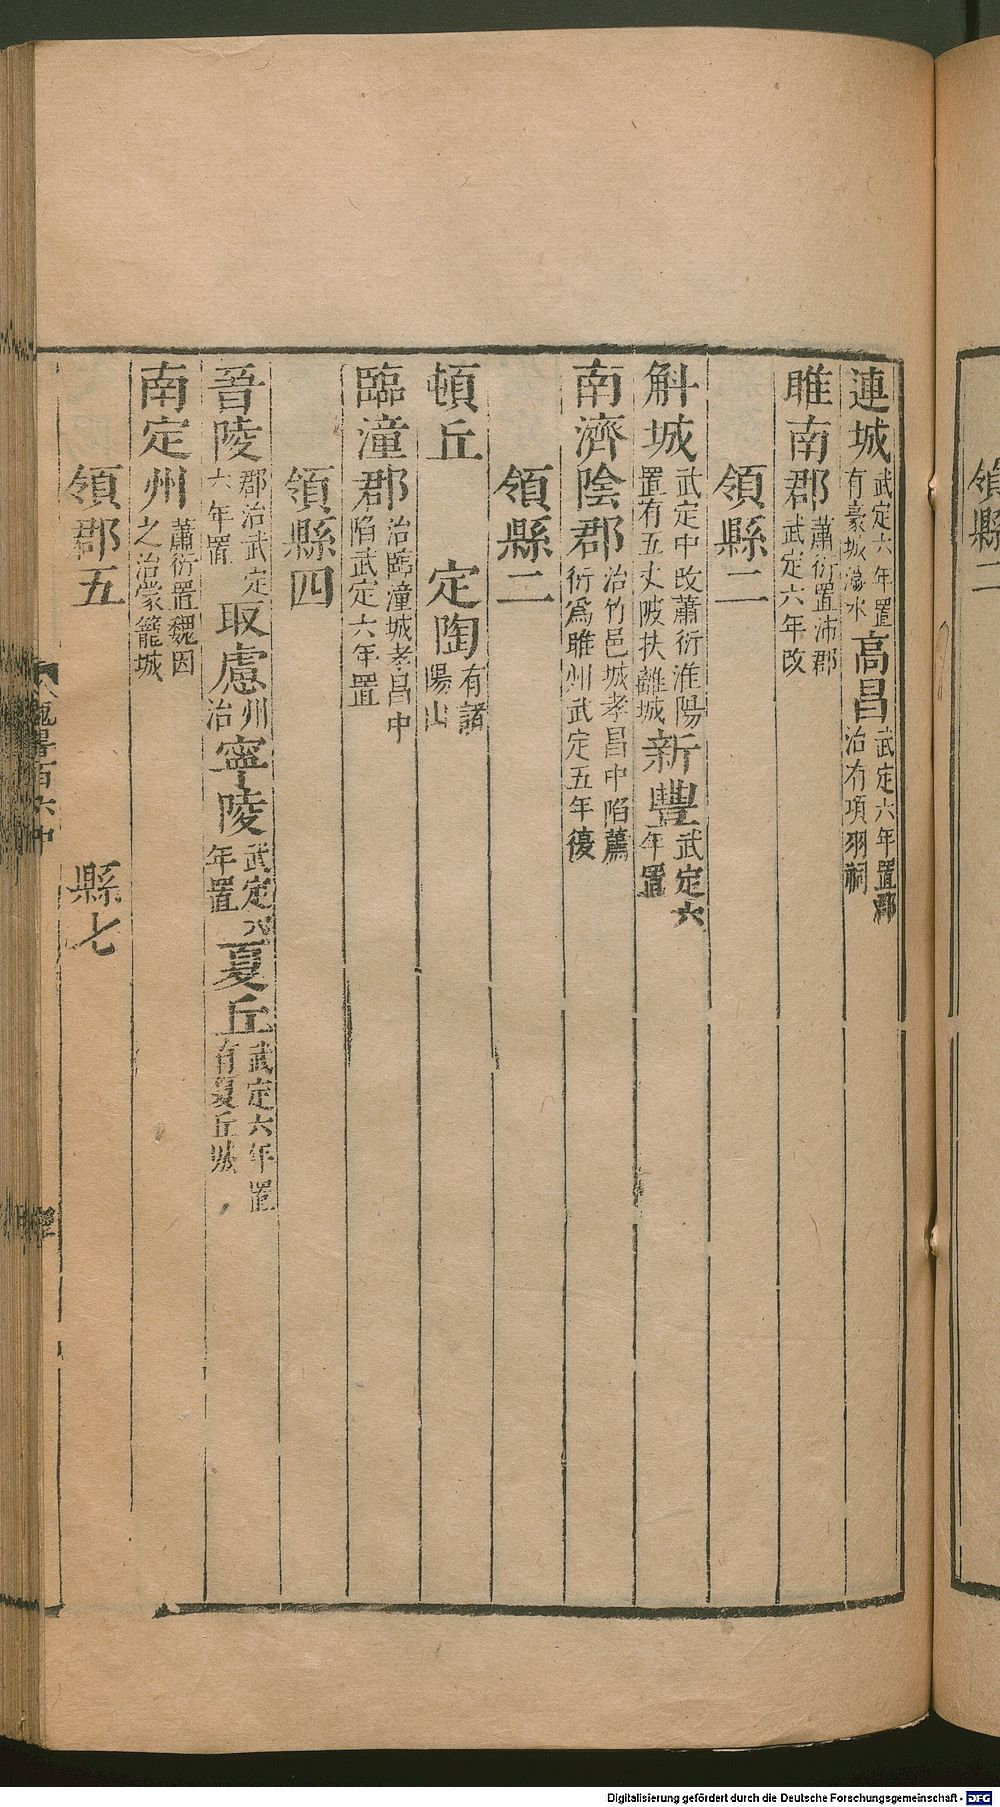 領縣二
連城武定六年置有豪城濠水高昌武定六年置郡治有項羽祠
睢南郡蕭衍置沛郡武定六年改
領縣二
斛城武定中改蕭衍淮陽置有五丈陂扶離城新豐武定六年置
南濟陰郡治竹邑城孝昌中陷蕭衍爲睢州武定五年復
領縣二
頓丘 定陶有諸陽山
臨潼郡治臨潼城孝昌中陷武定六年置
領縣四
晉陵郡治武定六年置取慮州治寧陵武定六年置夏丘武定六年置有夏丘城
南定州蕭衍置魏因之治蒙籠城
領郡五 縣七
魏書百六中
Digitalisierung gefördert durch die Deutsche Forschungsgemeinschaft - DFG